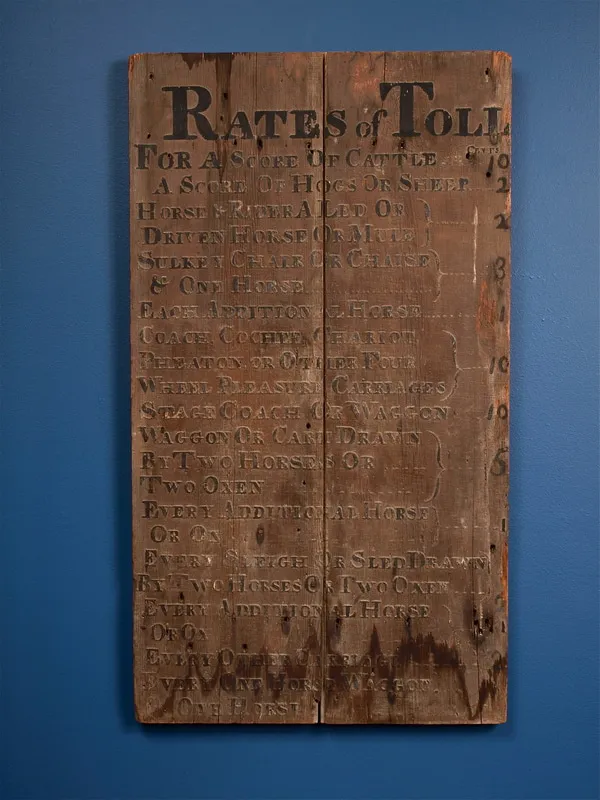 RATES of TOLL
Cents
FOR A SCORE OF CATTLE 10
A SCORE OF HOGS OR SHEEP 2
HORSE & RIDER A LED OR
DRIVEN HORSE OR MULE
SULKEY CHAIR OR CHAISE 3
& ONE HORSE
EACH ADDITIONAL HORSE 1
COACH COCHEE CHARIOT
PHEATON OR OTHER FOUR 10
WHEEL PLEASURE CARRIAGES
STAGE COACH OR WAGGON 10
WAGGON OR CART DRAWN
BY TWO HORSES OR 5
TWO OXEN
EVERY ADDITIONAL HORSE
OR OX 1
EVERY SLEIGH OR SLED DRAWN
BY TWO HORSES OR TWO OXEN
EVERY ADDITIONAL HORSE
OR OX
EVERY OTHER CARRIAGE
EVERY ONE HORSE WAGGON
ONE HORSE